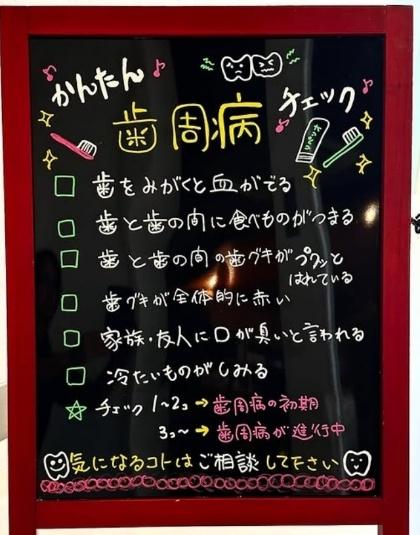 かんたん
歯周病
チェック
歯をみがくと血がでる
歯と歯の間に食べものがつまる
歯と歯の間の歯グキがプクッと
はれている
歯グキが全体的に赤い
家族・友人に口が臭いと言われる
冷たいものがしみる
☆ チェック 1~2コ → 歯周病の初期
3コ~ → 歯周病が進行中
気になるコトはご相談して下さい